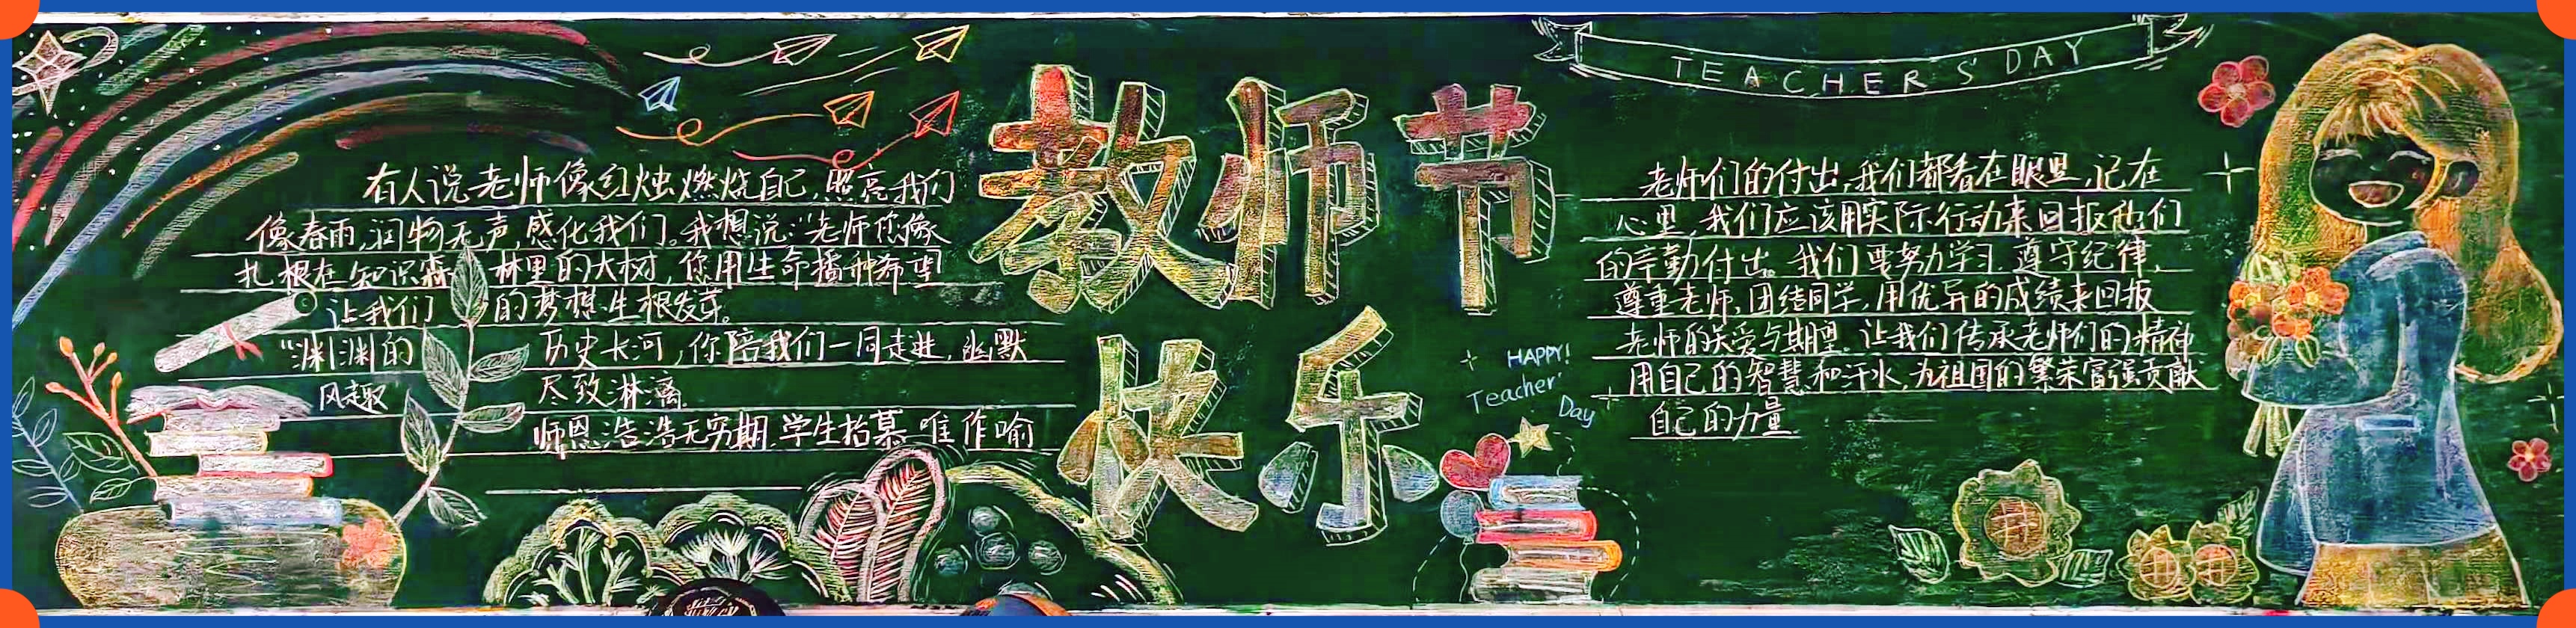 有人说老师像红烛燃烧自己,照亮我们
像春雨,润物无声,感化我们。我想说:“老师您像
扎根在知识森林里的大树,您用生命播种希望
让我们的梦想生根发芽。
“渊渊的历史长河,你陪我们一同走进,幽默
风趣尽致淋漓.
师恩浩浩无穷期.学生抬慕唯作喻
教师节
快乐
HAPPY!
Teacher'
Day
TEACHERS'DAY
老师们的付出,我们都看在眼里,记在
心里,我们应该用实际行动来回报他们
的辛勤付出。我们要努力学习.遵守纪律,
尊重老师,团结同学,用优异的成绩来回报
老师的关爱与期望.让我们传承老师们的精神
用自己的智慧和汗水,为祖国的繁荣富强贡献
自己的力量.